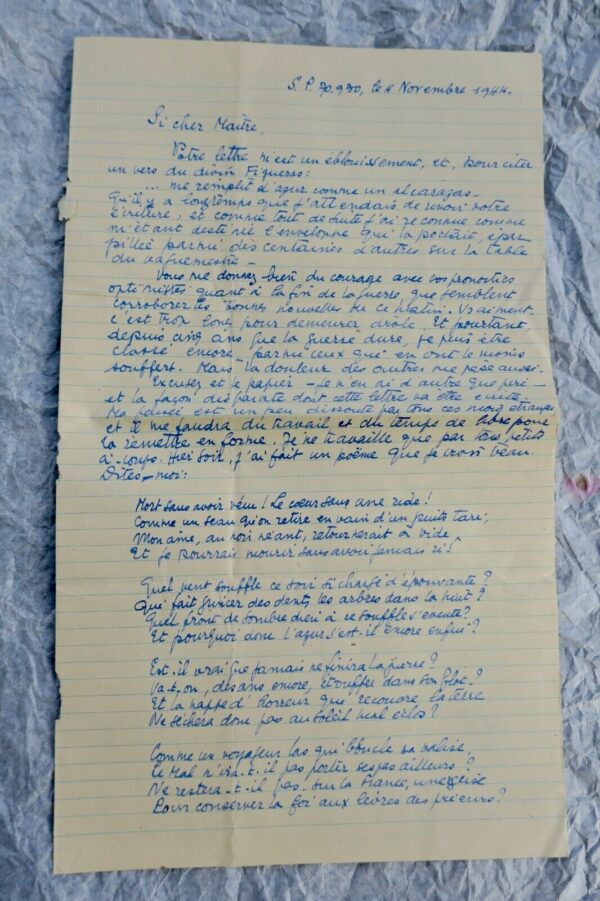 S.P. 70.970, le 4 Novembre 1944.
Si cher Maître,
Votre lettre m'est un éblouissement, et, pour citer
un vers du divin Figueras:
... me remplit d'azur comme un alcarazas.
Qu'il y a longtemps que j'attendais de revoir votre
écriture, et comme tout de suite j'ai reconnue comme
m'étant destinée l'enveloppe qui la portait, épar-
pillée parmi des centaines d'autres sur la table
du vaguemestre -
Vous me donnez bien du courage avec vos pronostics
optimistes quant à la fin de la guerre, que semblent
corroborer les bonnes nouvelles de ce matin. Vraiment,
c'est trop long pour demeurer drôle. Et pourtant,
depuis cinq ans que la guerre dure, je puis être
classé encore parmi ceux qui en ont le moins
souffert. Mais la douleur des autres me pèse aussi.
Excusez et le papier - je n'en ai d'autre que pire -
et la façon disparate dont cette lettre va être écrite.
Ma pensée est un peu dissoute par tous ces mois étranges
et il me faudra du travail et du temps de libre pour
la remettre en forme. Je ne travaille que par tous petits
à-coups. Hier soir, j'ai fait un poëme que je crois beau.
Dites-moi:
Mort sans avoir vécu! Le cœur sans une ride!
Comme un seau qu'on retire en vain d'un puits tari,
Mon âme, au noir néant, retournerait à vide,
Et je pourrais mourir sans avoir jamais ri!
Quel vent souffle ce soir si chargé d'épouvante?
Qui fait grincer des dents les arbres dans la nuit?
Quel front de sombre dieu à ce souffle s'évente?
Et pourquoi donc l'azur s'est-il encore enfui?
Est-il vrai que jamais ne finira la guerre?
Va-t-on, des ans encore, étouffer dans son
Et la nappe d'horreur qui recouvre la terre
Ne sèchera donc pas au soleil mal éclos?
Comme un voyageur las qui boucle sa valise,
Le Mal n'ira-t-il pas porter ses pas ailleurs?
Ne restera-t-il pas sur la France, une église
Pour conserver la foi aux lèvres des prieurs?